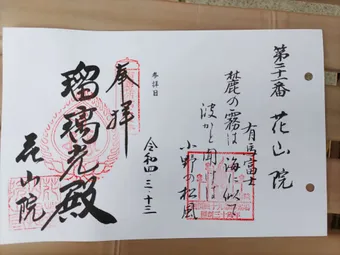 第二十一番 花山院
有馬富士
麓の霧は 海に似て
波かと聞けば
小野の松風
令和四、三、十三
参拝日
奉拝
瑠璃光殿
花山院